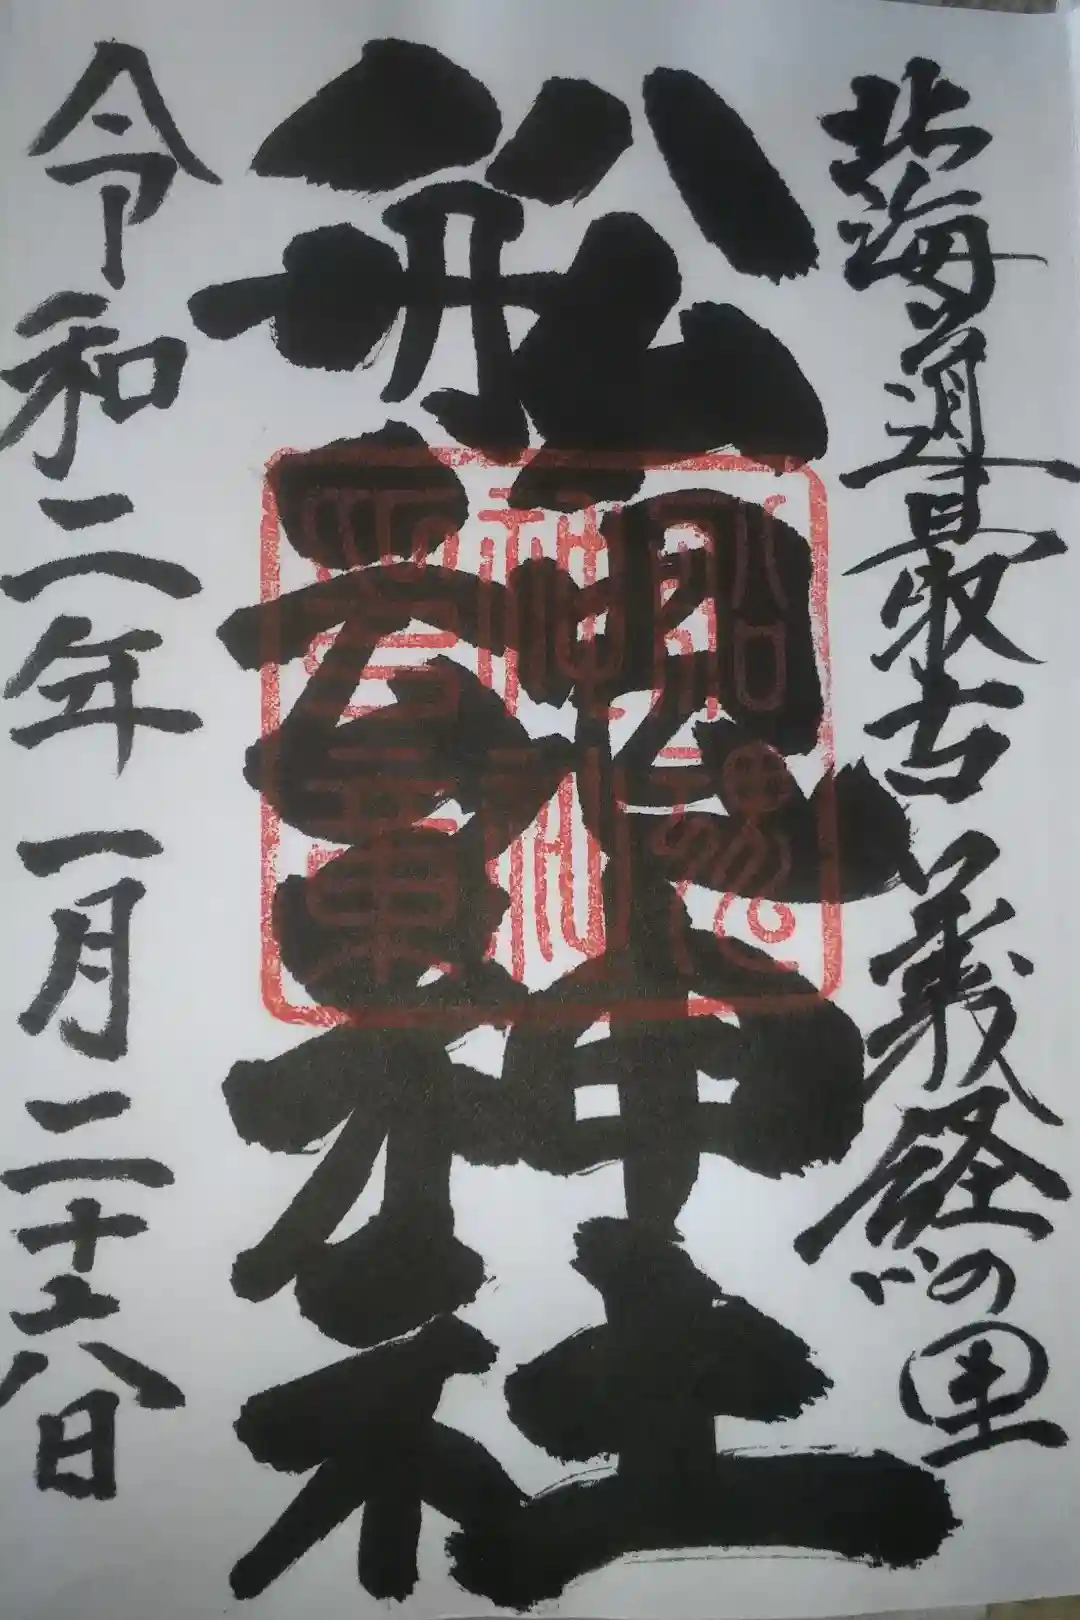 北海道最古 義経の里
船魂神社
令和二年一月二十六日
船魂
神社